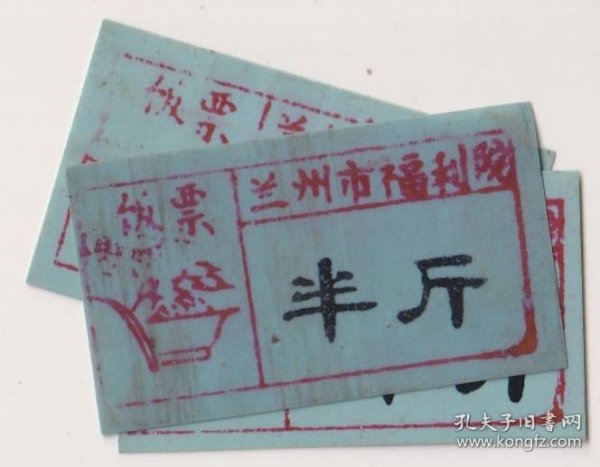 饭票
兰州市福利院
饭票
半斤
孔夫子旧书网
www.kongfz.com